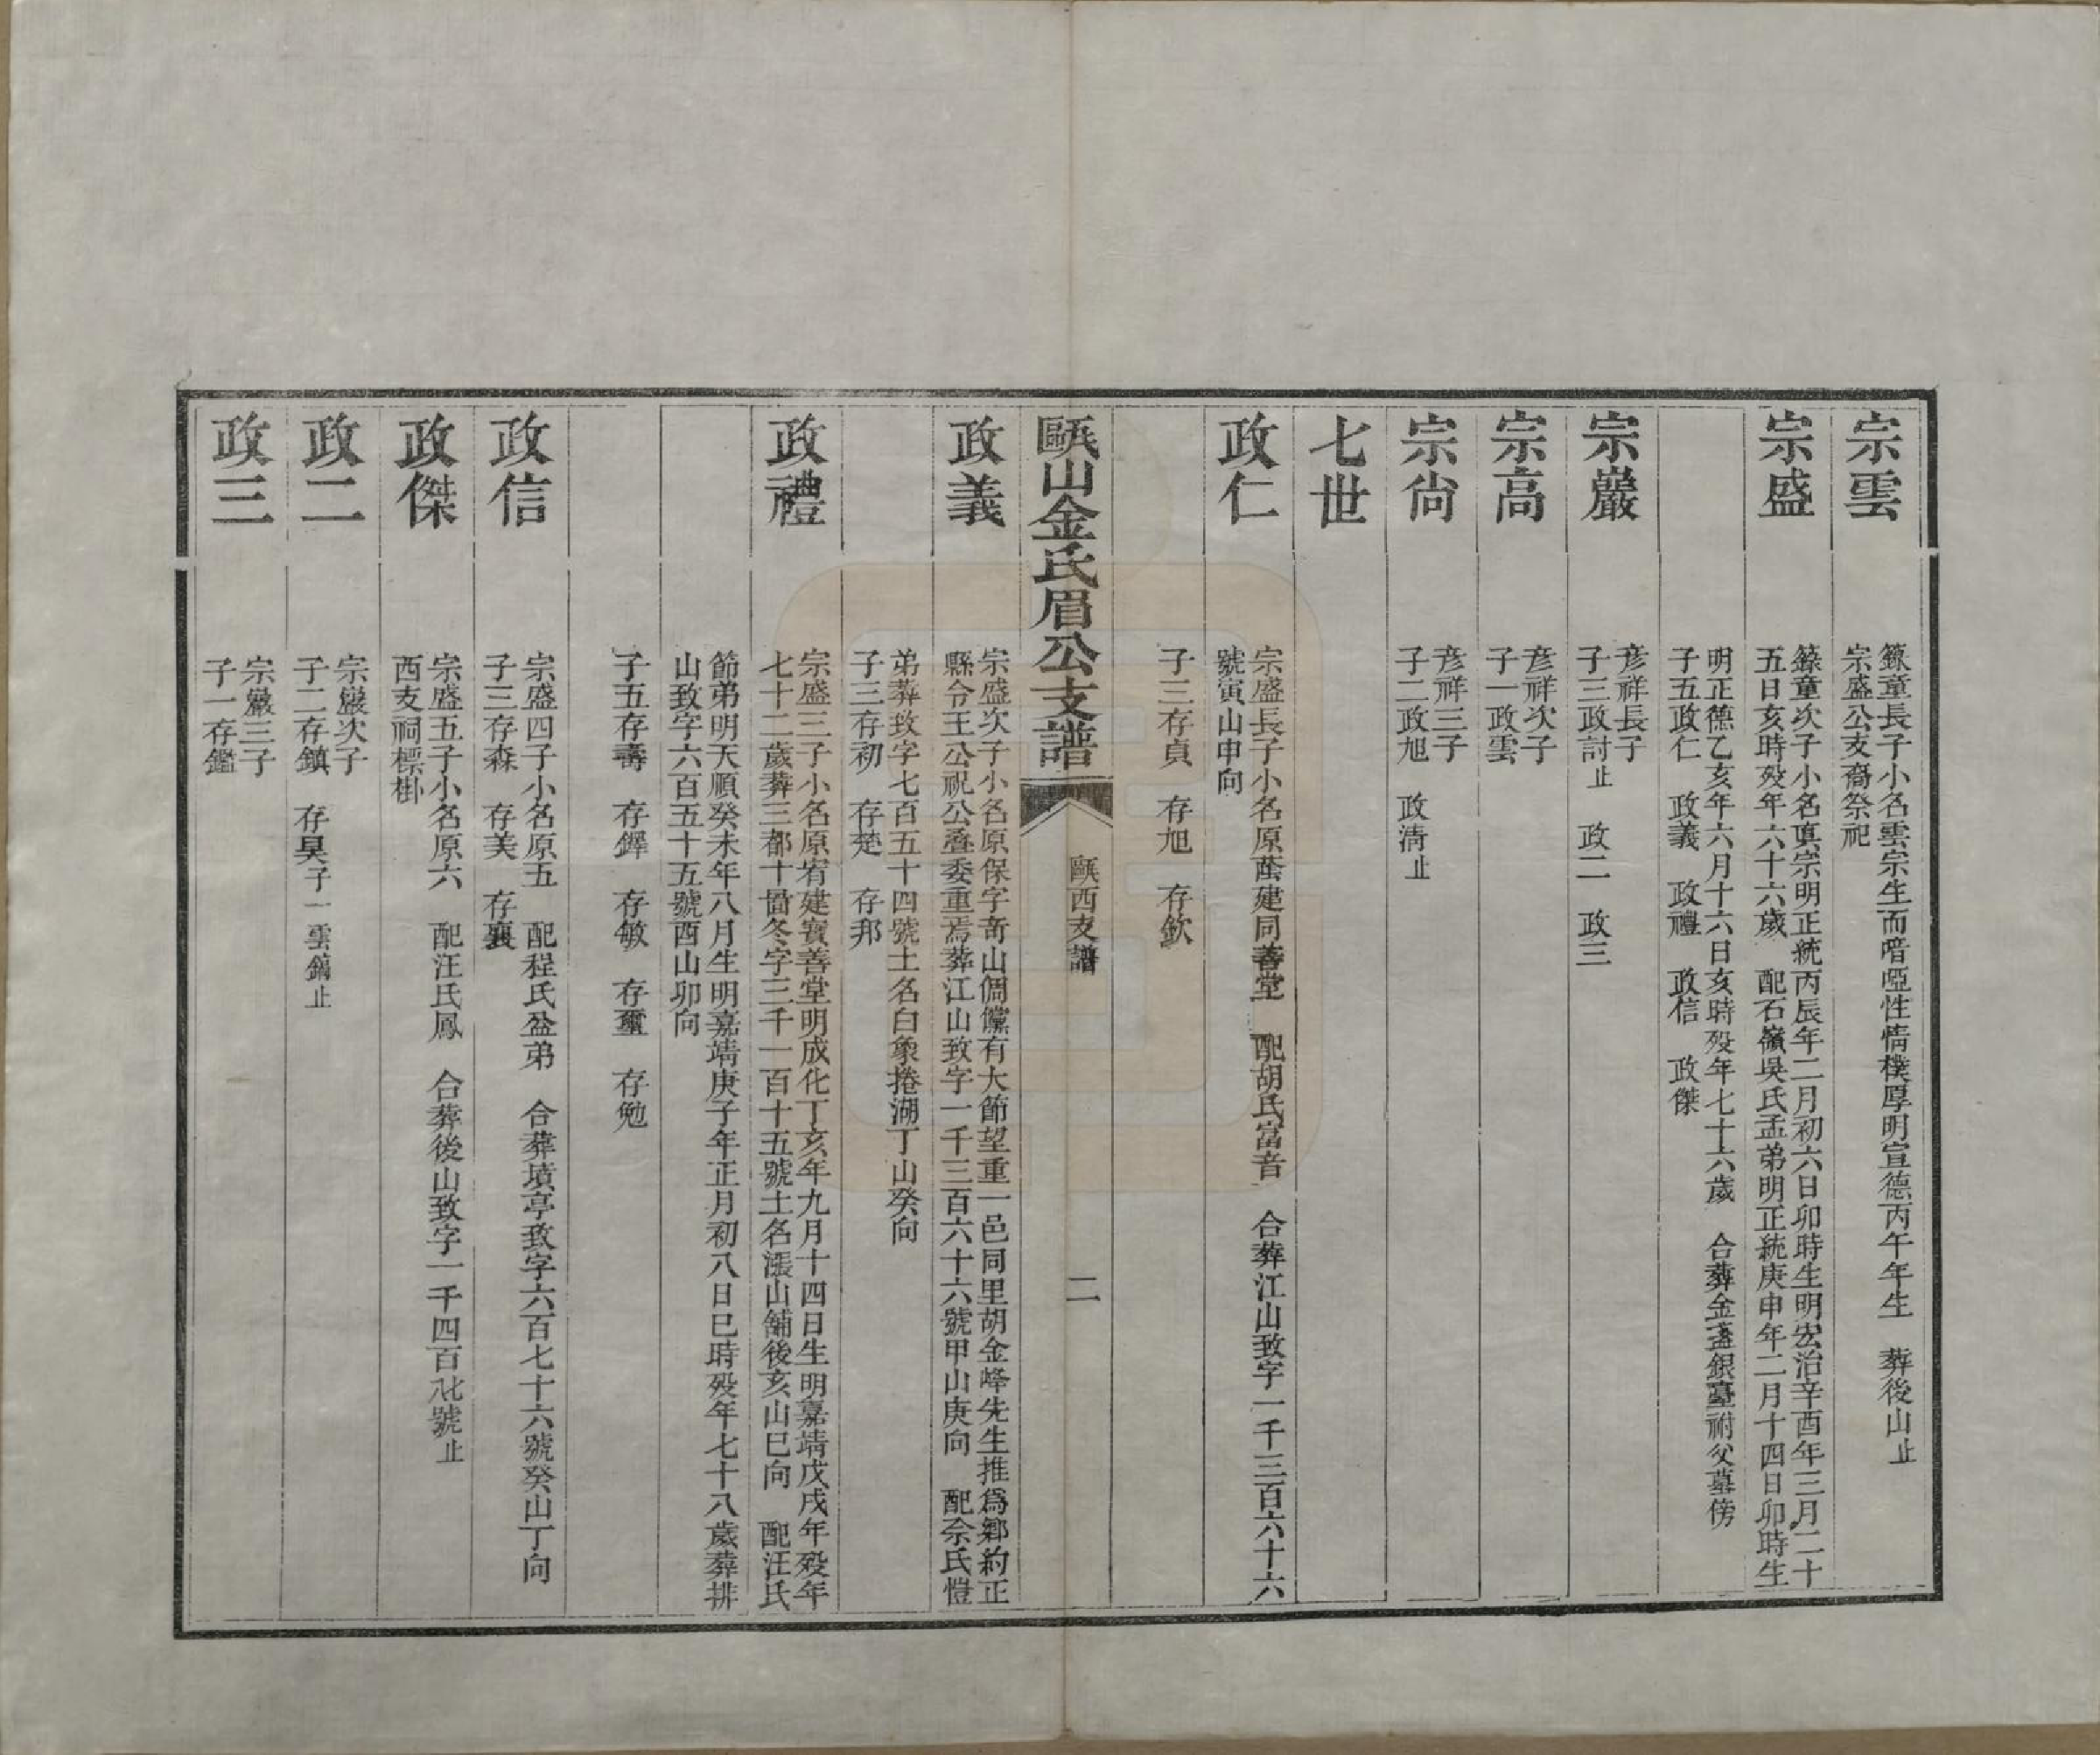 宗雲
籙童長子小名雲宗生而喑啞性情樸厚明宣德丙午年生　葬後山止
宗盛公支裔祭祀
宗盛
籙童次子小名真宗明正統丙辰年二月初六日卯時生明宏治辛酉年三月二十
五日亥時歿年六十六歲　配石嶺吳氏孟弟明正統庚申年二月十四日卯時生
明正德乙亥年六月十六日亥時歿年七十六歲　合葬金盞銀臺祔父墓傍
子五政仁　政義　政禮　政信　政傑
宗巖
彦祥長子
子三政討止　政二　政三
宗高
彦祥次子
子一政雲
宗尙
彦祥三子
子二政旭　政淸止
七世
政仁
宗盛長子小名原蔭建同善堂　配胡氏富音　合葬江山致字一千三百六十六
號寅山申向
子三存貞　存旭　存欽
甌山金氏眉公支譜
甌西支譜
二
政義
宗盛次子小名原保字奇山倜儻有大節望重一邑同里胡金峰先生推爲鄉約正
縣令王公祝公叠委重焉葬江山致字一千三百六十六號甲山庚向　配佘氏愷
弟葬致字七百五十四號土名白象捲湖丁山癸向
子三存初　存楚　存邦
政禮
宗盛三子小名原宥建寳善堂明成化丁亥年九月十四日生明嘉靖戊戌年歿年
七十二歲葬三都十啚冬字三千一百十五號土名漲山舖後亥山巳向　配汪氏
節弟明天順癸未年八月生明嘉靖庚子年正月初八日巳時歿年七十八歲葬排
山致字六百五十五號酉山卯向
子五存壽　存鐸　存敏　存璽　存勉
政信
宗盛四子小名原五　配程氏盆弟　合葬墳亭致字六百七十六號癸山丁向
子三存森　存美　存襄
政傑
宗盛五子小名原六　配汪氏鳳　合葬後山致字一千四百八七號止
西支祠標掛
政二
宗巖次子
子二存鎮　存昊子一雲鎬止
政三
宗巖三子
子一存鑑